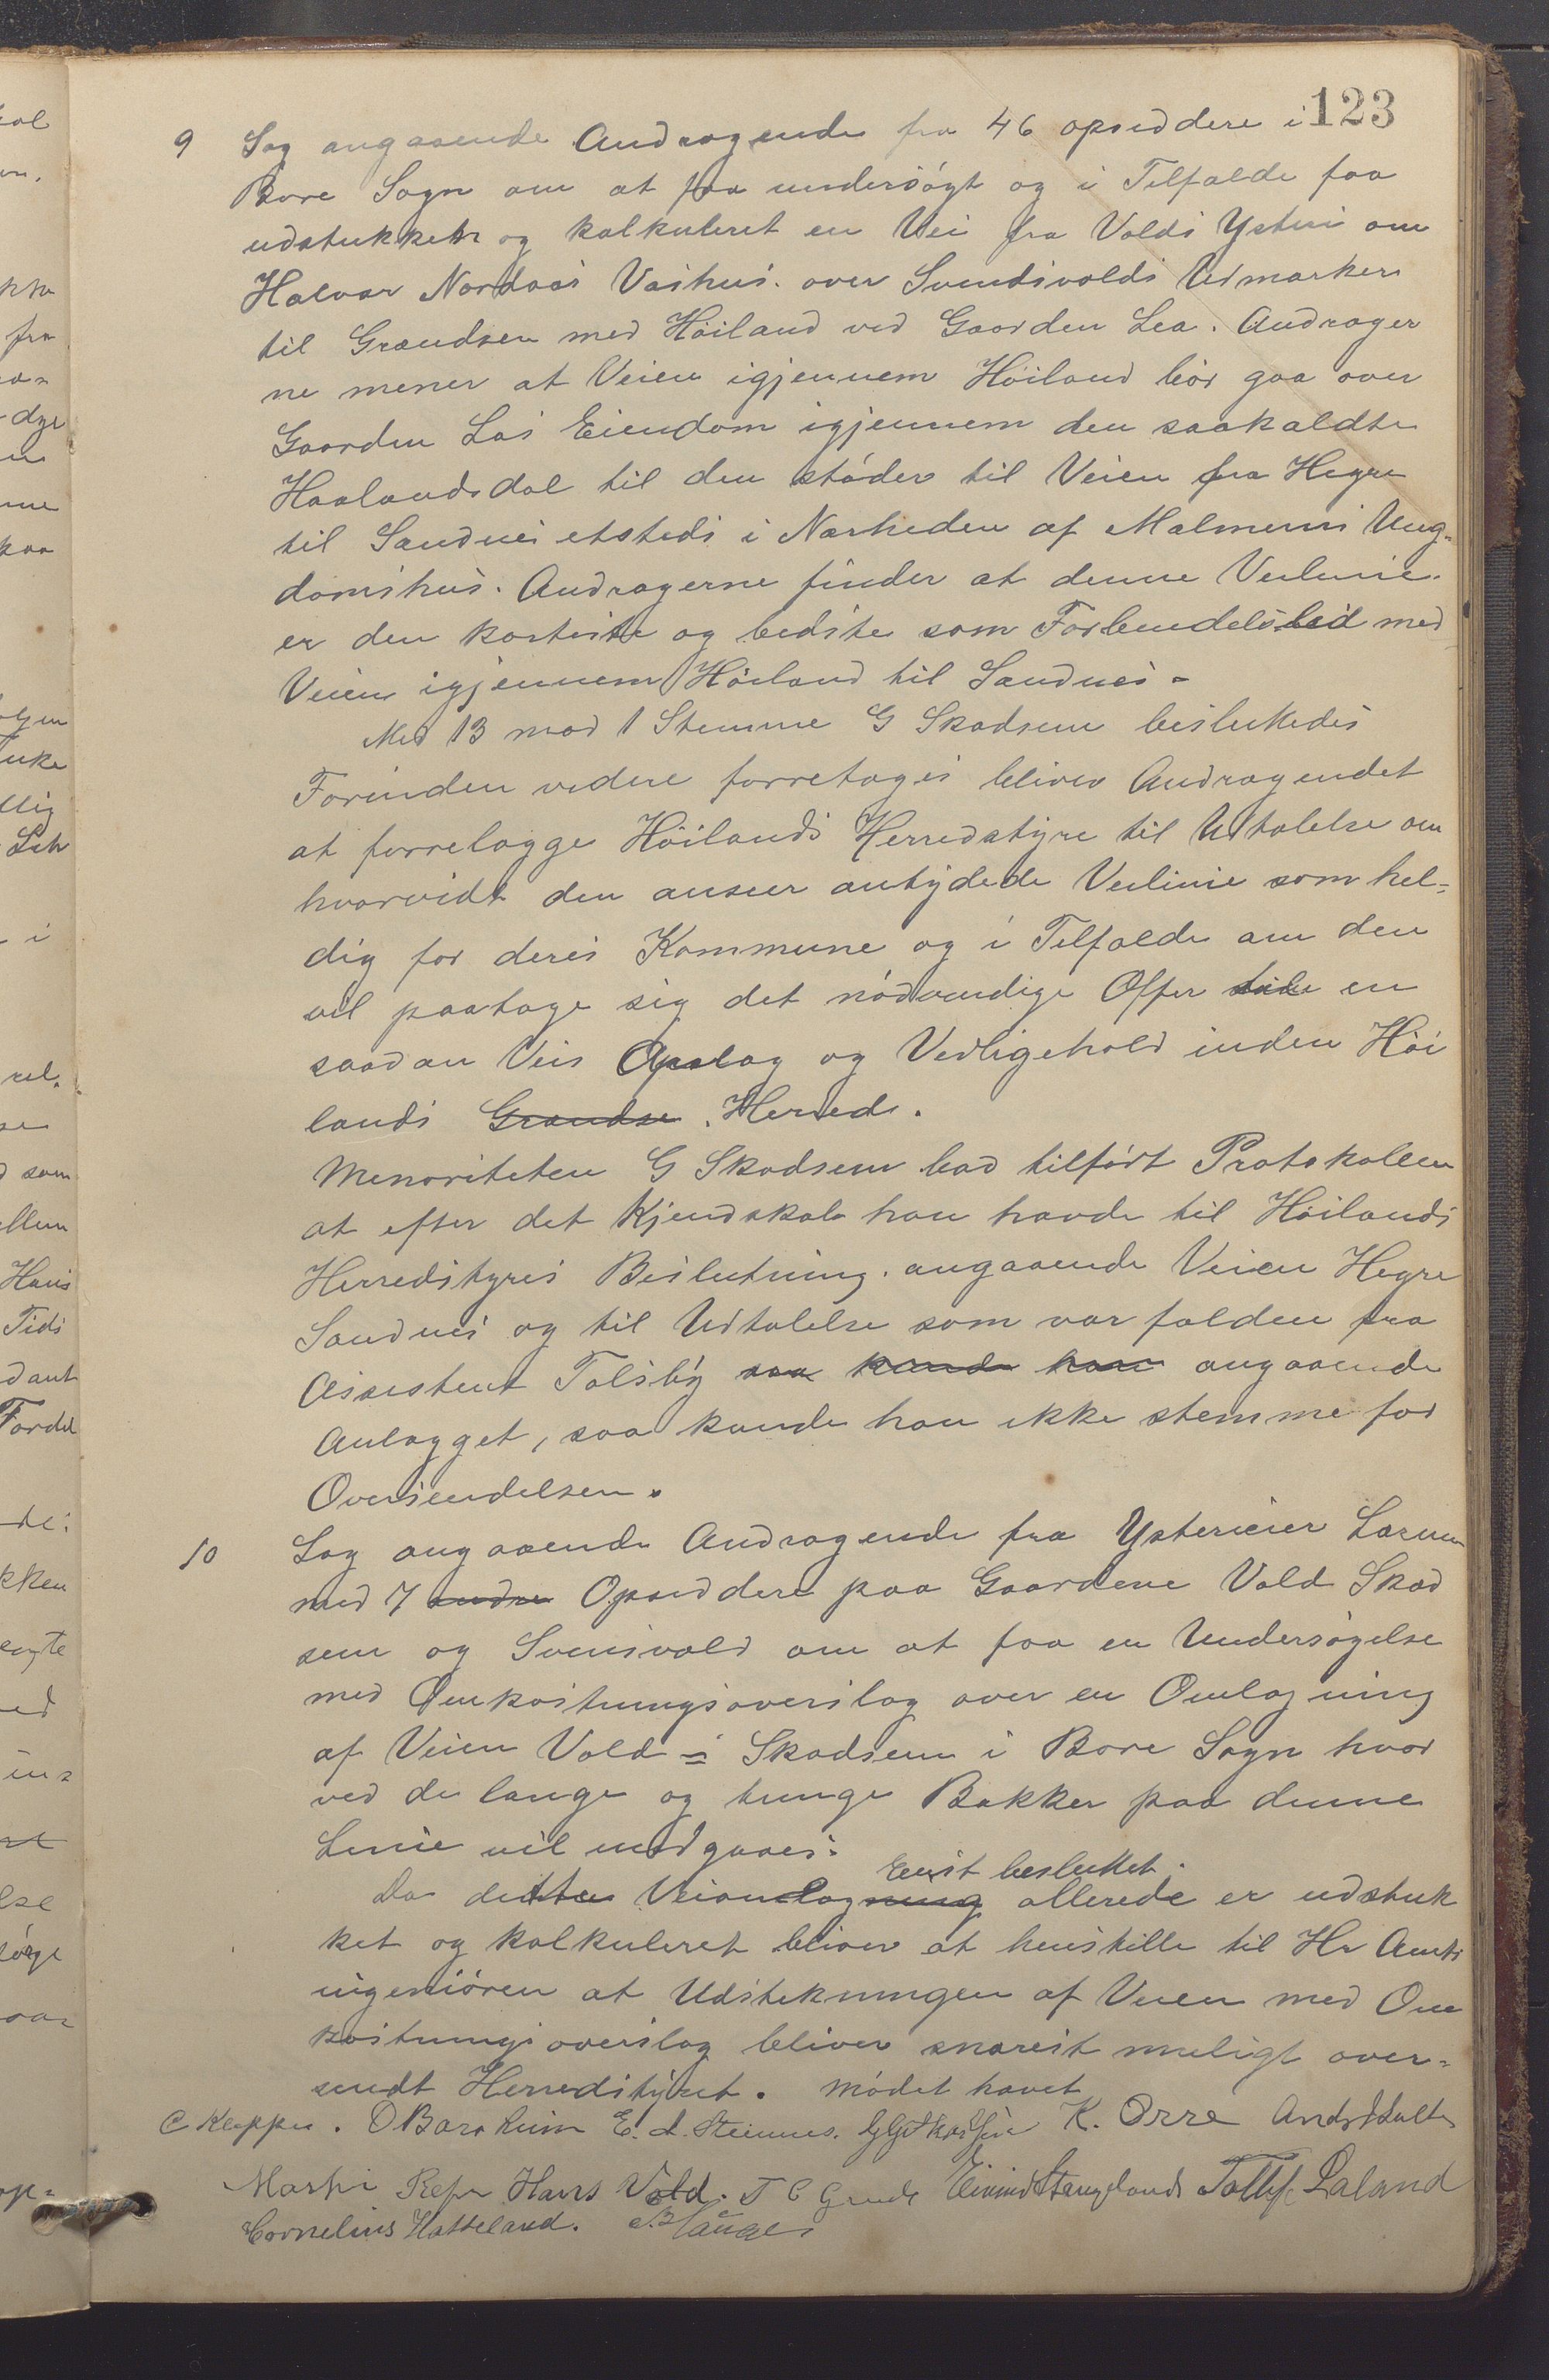 123
9 Sag angaaende Andragende fra 46 opsiddere i
Bore Sogn om at faa undersögt og i Tilfælde faa
udstukket og kalkuleret en Vei fra Volds Ysteri om
Halvar Nordaas Vashus. over Svendsvolds Udmarker
til Grændsen med Höiland ved Gaarden Lea. Andrager
ne mener at Veien igjennem Höiland bör gaa over
Gaarden Las Eiendom igjennem den saakaldte
Haalandsdal til den stöder til Veien fra Hegre
til Sandnes etsteds i Nærheden af Malmeims Ung-
domshus. Andragerne finder at denne Veilinie
er den korteste og bedste som Forbendelsled med
Veien igjennem Höiland til Sandnes -
Med 13 mod 1 Stemme G Skadsem beslutedes
Forinden videre forretages bliver Andragendet
at forrelægge Höilands Herredstyre til Udtalelse om
hvorvidt den anseer antydede Veilinie som hel-
dig for deres Kommune og i Tilfælde om den
vil paatage sig det nödvendige Offer til en
saadan Veis Anlæg og Vedligehold inden Höi
lands Grændse. Herred.
Menoriteten G Skadsem bad tilfört Protokollen
at efter det Kjendskab han havde til Höilands
Herredstyres Beslutning angaaende Veien Hegre
Sandnes og til Udtalelse som var falden fra
Assistent Talsby saa kunde han angaaende
Anlægget, saa kunde han ikke stemme for
Oversendelsen.
10 Sag angaaende Andragende fra Ysterieier Larsen
med 7 andre Opsiddere paa Gaardene Vold Skad
sem og Svensvold om at faa en Undersögelse
med Omkostningsoverslag over en Omlægning
af Veien Vold - Skadsem i Bore Sogn hvor
ved de lange og tunge Bakker paa denne
Linie vil undgaaes.
Enst besluttet.
Da dette Veiomlægning allerede er udstuk
ket og kalkuleret bliver at henstille til Hr Amts
ingeniören at Udstikningen af Veien med Om
kostningsoverslag bliver snarest muligt over-
sendt Herredstyret. Mödet hævet
C Kleppe. O Borsheim E. A. Steinnes. G G Skadsem K. Orre
Hans Vold. T C Grude Eivind Stangeland Tollef Laland
Cornelius Hatteland.